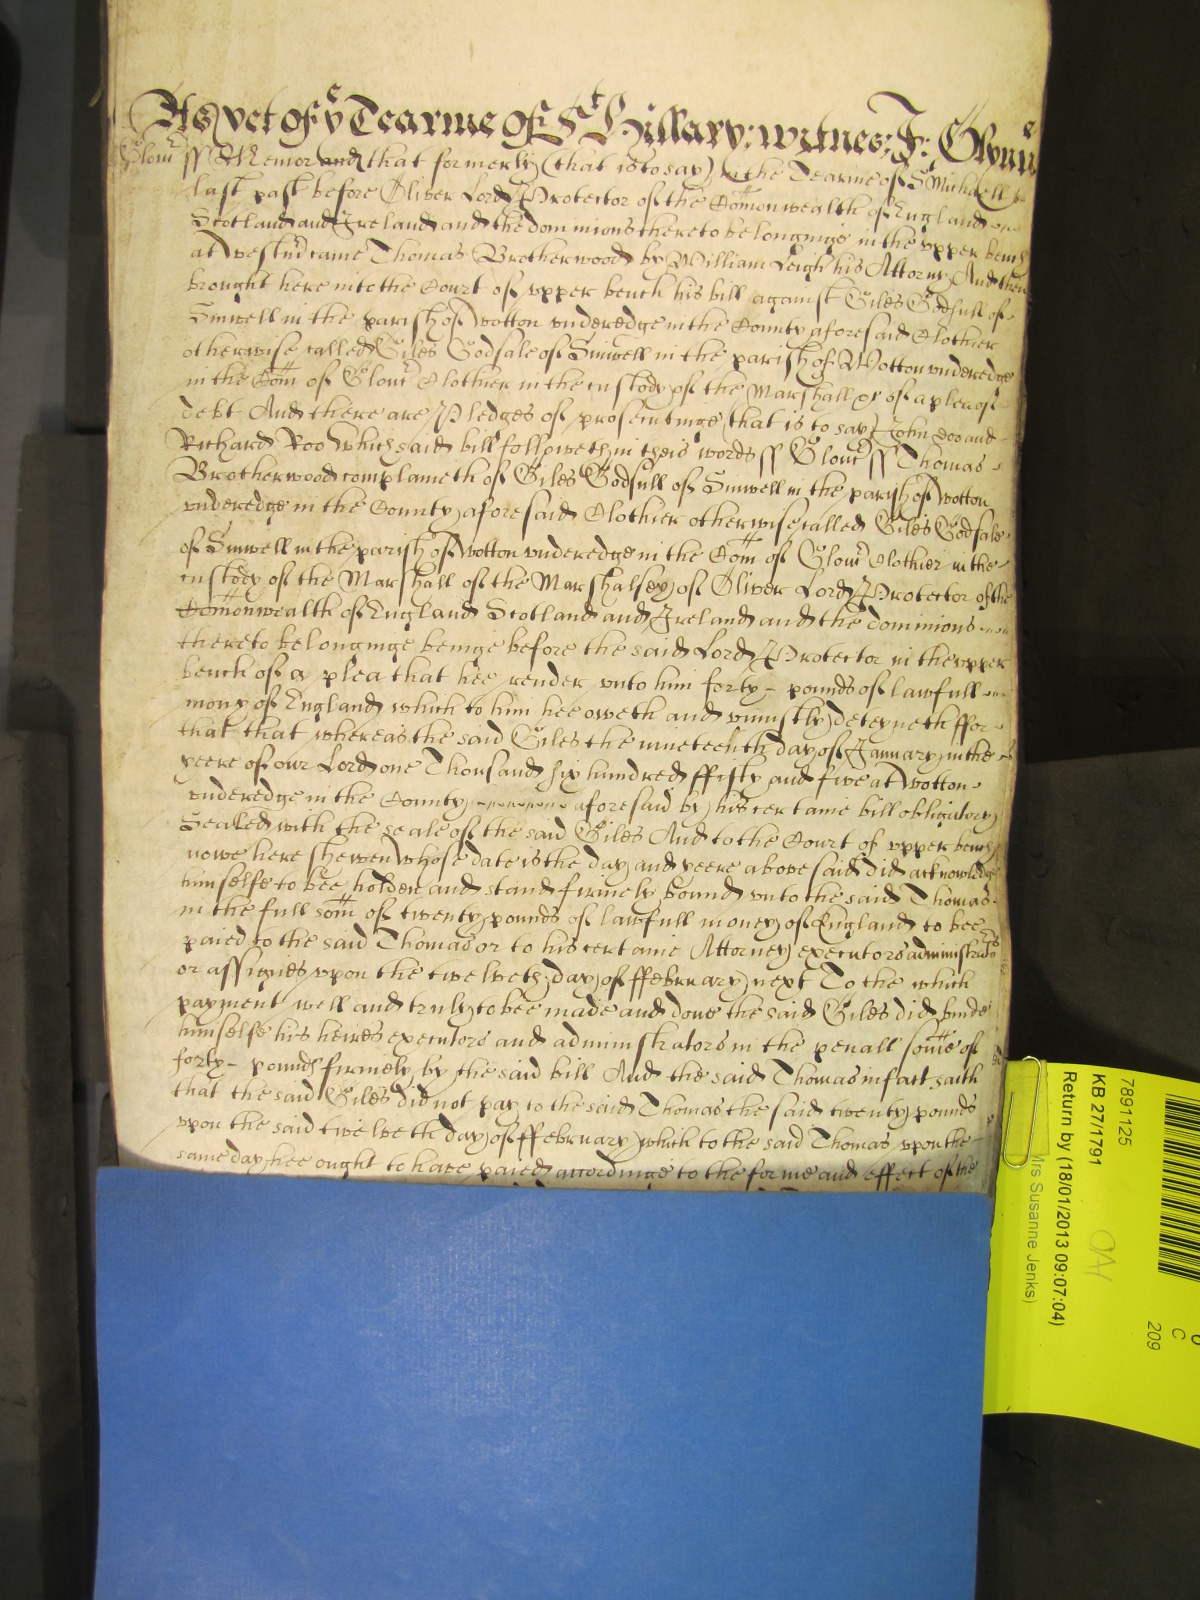 As yet of yͤ Tearme of Sᵗ Hillary: witnes: J: Glynne
Glouc ss Memorand that formerly (that is to say) in the Tearme of S Michaell
last past before Oliver Lord Protector of the Comonwealth of England
Scotland and Ireland and the dominions thereto belonginge in the vpper bench
at Westm came Thomas Brotherwood by William Leigh his Attorny And then
brought here into the Court of vpper bench his bill against Giles Godsull of
Sinwell in the parish of Wotton vnderedge in the County aforesaid Clothier
otherwise called Giles Godsale of Sinwell in the parish of Wotton vnderedge
in the Com of Glouc Clothier in the custody of the Marshall &c of a plea of
debt And there are Pledges of prosecutinge that is to say John Doo and
Richard Roo Which said bill followeth in theis words ss Glouc ss Thomas
Brotherwood complaineth of Giles Godsull of Sinwell in the parish of Wotton
vnderedge in the County aforesaid Clothier otherwise called Giles Godsale
of Sinwell in the parish of Wotton vnderedge in the Com of Glouc Clothier in the
custody of the Marshall of the Marshalsey of Oliver Lord Protector of the
Comonwealth of England Scotland and Ireland and the dominions
thereto belonginge beinge before the said Lord Protector in the vpper
bench of a plea that hee render vnto him forty pounds of lawfull
mony of England which to him hee oweth and viniustly deteyneth ffor
that that whereas the said Giles the nineteenth day of January in the
yeere of our Lord one Thousand six hundred ffifty and five at Wotton
vnderedge in the County aforesaid by his certaine bill obligatory
Sealed with the seale of the said Giles And to the Court of vpper bench
nowe here shewen Whose date is the day and yeere above said did acknowledge
himselfe to bee holden and stand firmely bound vnto the said Thomas
in the full som of twenty pounds of lawfull money of England to bee
paied to the said Thomas or to his certaine Attorney executors administrators
or assignes vpon the twelveth day of ffebruary next To the which
payment well and truly to bee made and done the said Giles did binde
himselfe his heires executors and administrators in the penall some of
forty pounds firmely by the said bill And the said Thomas in fact saith
that the said Giles did not pay to the said Thomas the said twenty pounds
vpon the said twelveth day of ffebruary which to the said Thomas vpon the
same day hee ought to have paied accordinge to the forme and effect of the
7891125
KB 27/1791
Return by (18/01/2013 09:07:04)
Mrs Susanne Jenks)
C
209